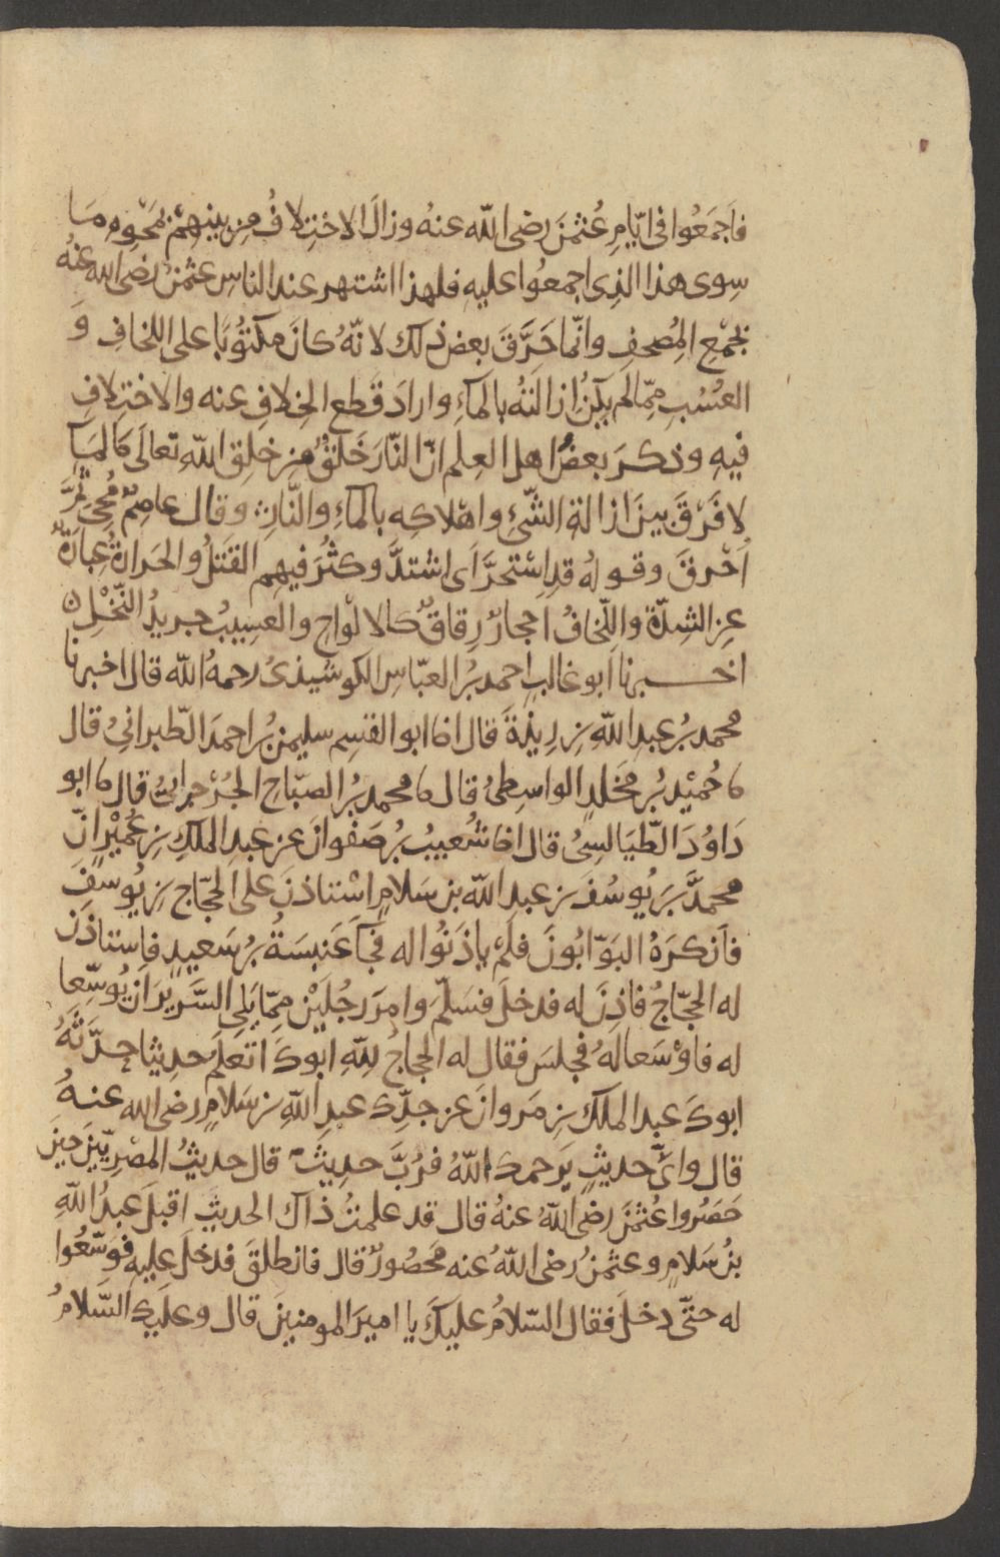 فاَجمَعُوا فى ايّامِ عُثمنَ رضى الله عنهُ وزالَ الاختِلافُ مِن بينهِمْ بمَحْوِهِم مَا
سِوى هذا الذِى اجمعُوا عليهِ فلهذا اشتهر عند الناسِ عثمنُ رضى الله عنهُ
بجَمْعِ المُصحفِ وانّما حَرَّقَ بعض ذلك لانّهُ كانَ مكتُوبًا على اللخافِ وَ
العسُبِ مِمّا لم يكنْ ازالتُهُ بالماءِ وارادَ قطعَ الخلافِ عنه والاختلافِ
فيهِ وذكرَ بعضُ اهل العِلم انّ النّارَ خَلقٌ من خلقِ اللهِ تعالَى كالمَآ
لا فَرْقَ بينَ ازالةِ الشّئِ واهلاكِه بالماءِ والنّارِ وقال عاصمٌ مُحِىَ ثمَّ
اُحْرقَ وقوله قدِ اسْتحرَّ اَى اشتدَّ وكثُرَ فيهم القَتلُ والحَرارةُ عِبارَةٌ
عن الشِدّة واللِّخافُ احجارٌ رِقاقٌ كالالواحِ والعسِيبُ جريدُ النّخْلِ ن
اخـــبرنا ابو غالبٍ احمد بنُ العبّاسِ الكوشيذىُ رحمهُ الله قال اخبرنا
محمد بنُ عبد اللهِ بن رِيذةَ قال انا ابو القسِم سليمن بنُ احمدَ الطّبرانىُ قال
ثا حُمَيْد بنُ مخَلدٍ الواسِطىُ قال ثا محمد بنُ الصبّاحِ الجُرْجرائىُ قال ثا ابو
دَاوُدَ الطّيَالسِىُّ قال انا شُعيبُ بنُ صَفوانَ عن عبدِ الملكِ بنِ عُمَيْرٍ انّ
محمدَ بنَ يوسُفَ بن عبدِ اللهِ بن سَلامٍ اسْتاذنَ على الحجّاجِ بنِ يُوسفَ
فاَنكرَهُ البَوّابُونَ فلَمْ ياذَنُوا له فجآ عَنبسَةُ بنُ سَعيدٍ فاستاذَنَ
له الحجّاجُ فاذِنَ له فدخلَ فسَلّمَ وامرَ رجُلَيْنِ مِمّا يَلى السَّريرَ ان يُوسّعا
له فاوْسَعا لهُ فجلسَ فقال له الحجاجُ للهِ ابوكَ اتعلَم حديثا حدَّثَهُ
ابوكَ عبد الملك بن مَروانَ عن جدِّكَ عبدِ اللهِ بن سَلامٍ رضى الله عنهُ
قال واىُّ حديثٍ يَرحمك اللهُ فرُبَّ حديثٍ قال حديثُ المصْريّينَ حينَ
حَصَرُوا عُثمنَ رضى اللهُ عنهُ قال قد علمتُ ذاك الحديثَ اقبلَ عبدُ اللهِ
بنُ سَلامٍ وعثمنُ رضى اللهُ عنه محَصُورٌ قال فانطلقَ فدخلَ عليهِ فوَسّعُوا
له حتّى دخلَ فقال السّلامُ عليكَ يا اميرَ المومنينَ قال وعليك السّلامُ